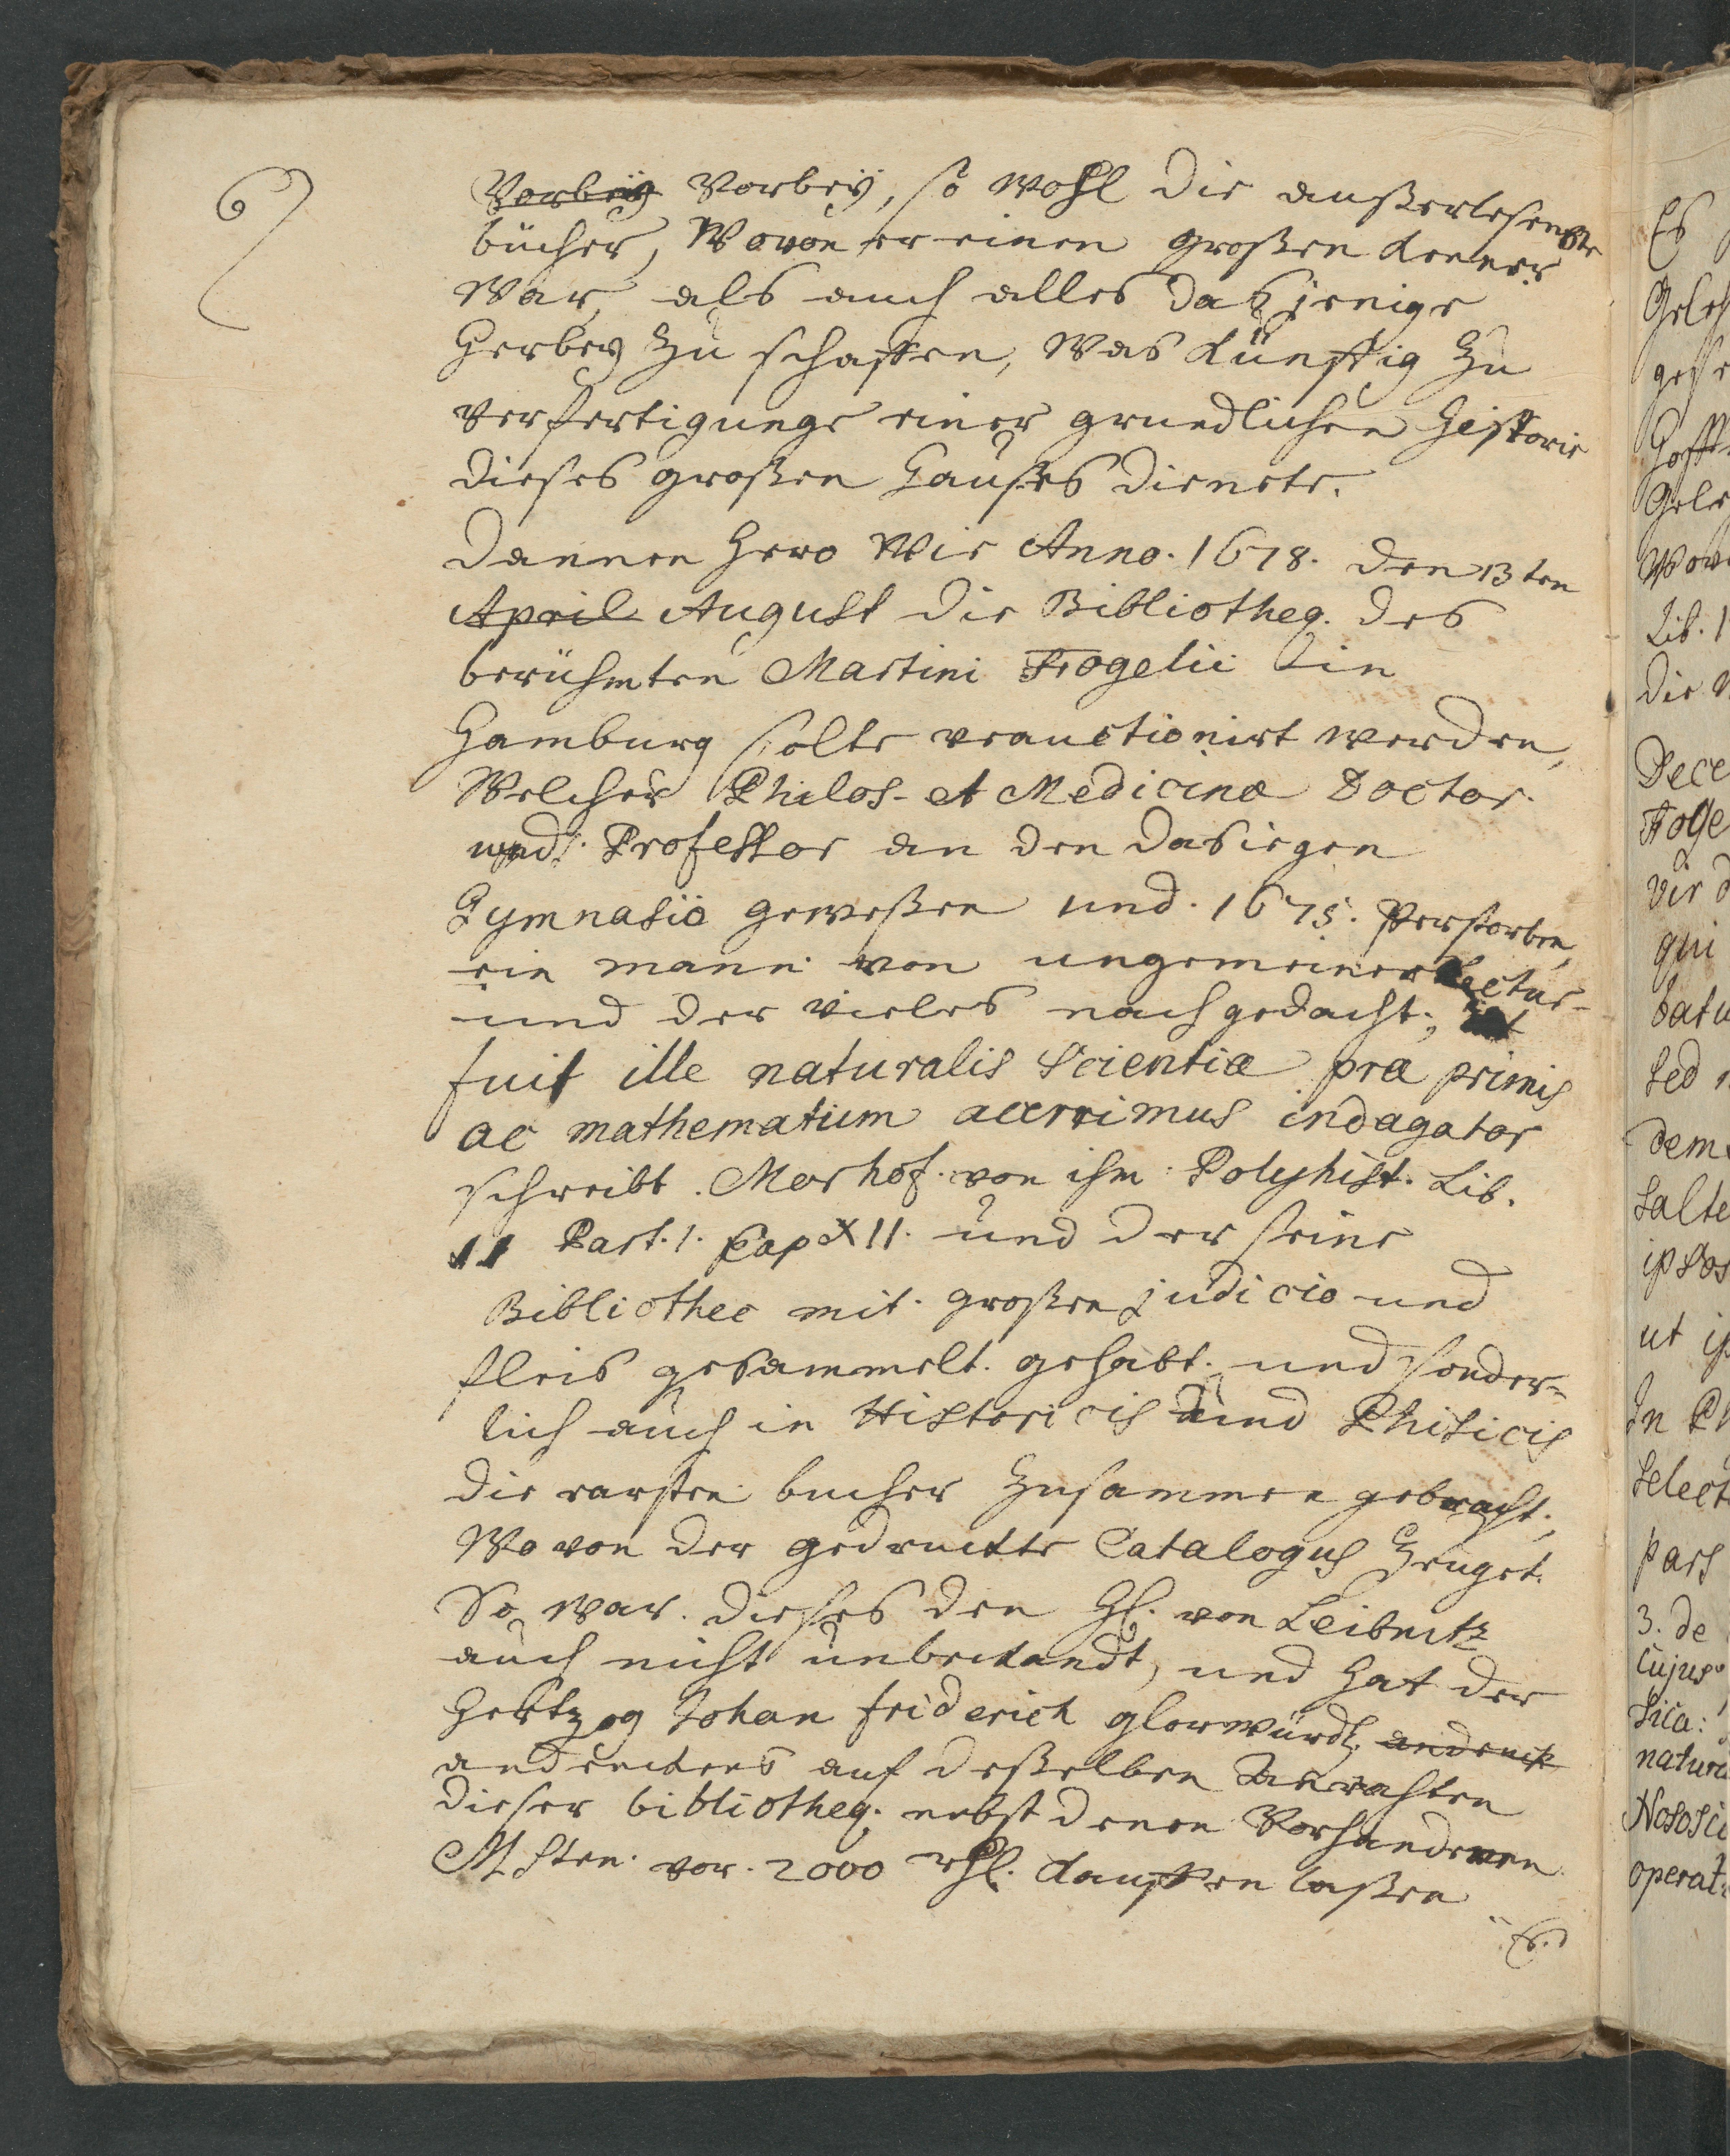 6
Vorbeÿ Vorbeÿ, so wohl die außerlesenste
bücher, Wovon er einen großen kenner
War, als auch alles das jenige
Herbey zu schaffen, Was künfftig zu
verfertigunge einer grundlichen Historie
dieses großen Haußes dienete.
Dannen hero Wie Anno. 1678. den 13ten
April August die Bibliotheq. des
berühmten Martini Fogelii in
Hamburg solte verauctionirt werden,
Welcher Philos- et Medicinæ Doctor
und. Professor an den dasiegen
Gymnasio geweßen und. 1675. Verstorben,
ein mann von ungemeiner Lectur-
und der vieles nachgedacht,
fuit ille naturalis Scientiæ præ primis
ac mathematum acerrimus indagator
schreibt. Morhof. von ihm: Polyhist. Lib.
11 Part. 1. Cap XII. und der seine
Bibliothec mit. großen judicio und
fleis gesammelt. gehabt. und sonder-
lich auch in Historicis und Phisicis
die rarsten bucher zusammen gebracht;
Wo von der gedruckte Catalogus zeuget.
So war. dieses den H. von Leibnitz
auch nicht unbekandt, und hat der
Hertzog Johan friderich glorwürd. andenck
andenckens auf deßelben Anrathen
dieser bibliotheq. nebst denen Vorhandenen
MSten. vor. 2000 rthl. kauffen laßen
Es
Dece
Foge
Vir
qui
datu
sed
dem
salte
ut
In
Select
pars
3. de
cujus
sica:
natur
operat